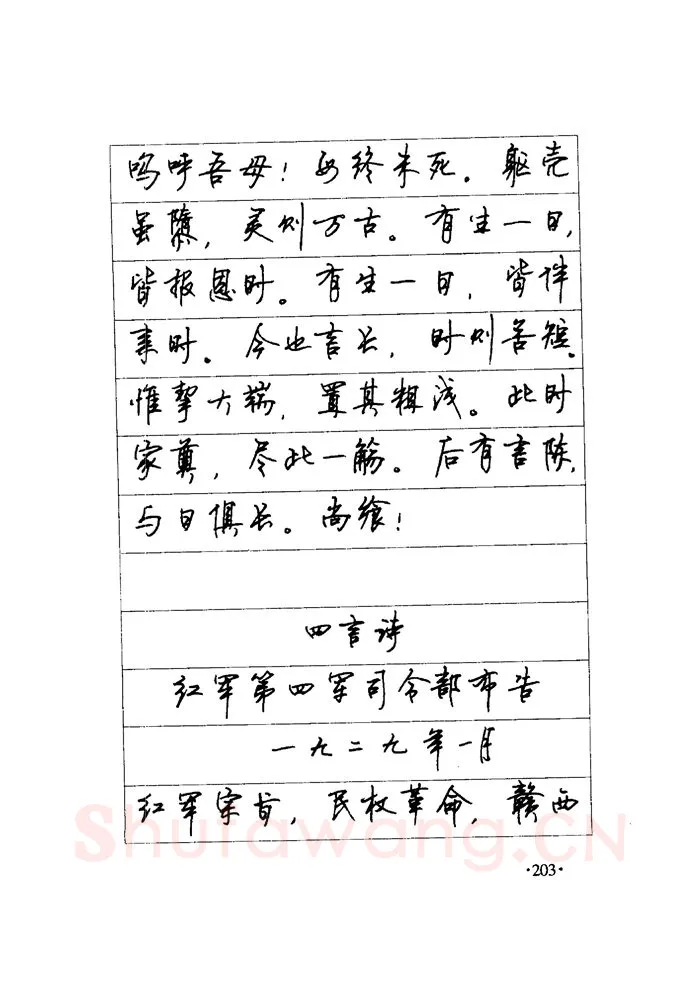 呜呼吾母！母终未死。躯壳
虽隳，灵则万古。有生一日，
皆报恩时。有生一日，皆伴
亲时。今也言长，时则苦短。
惟挈大端，置其粗浅。此时
家奠，尽此一觞。后有言陈，
与日俱长。尚飨！
四言诗
红军第四军司令部布告
一九二九年一月
红军宗旨，民权革命，赣西
Shufawang.CN
·203·